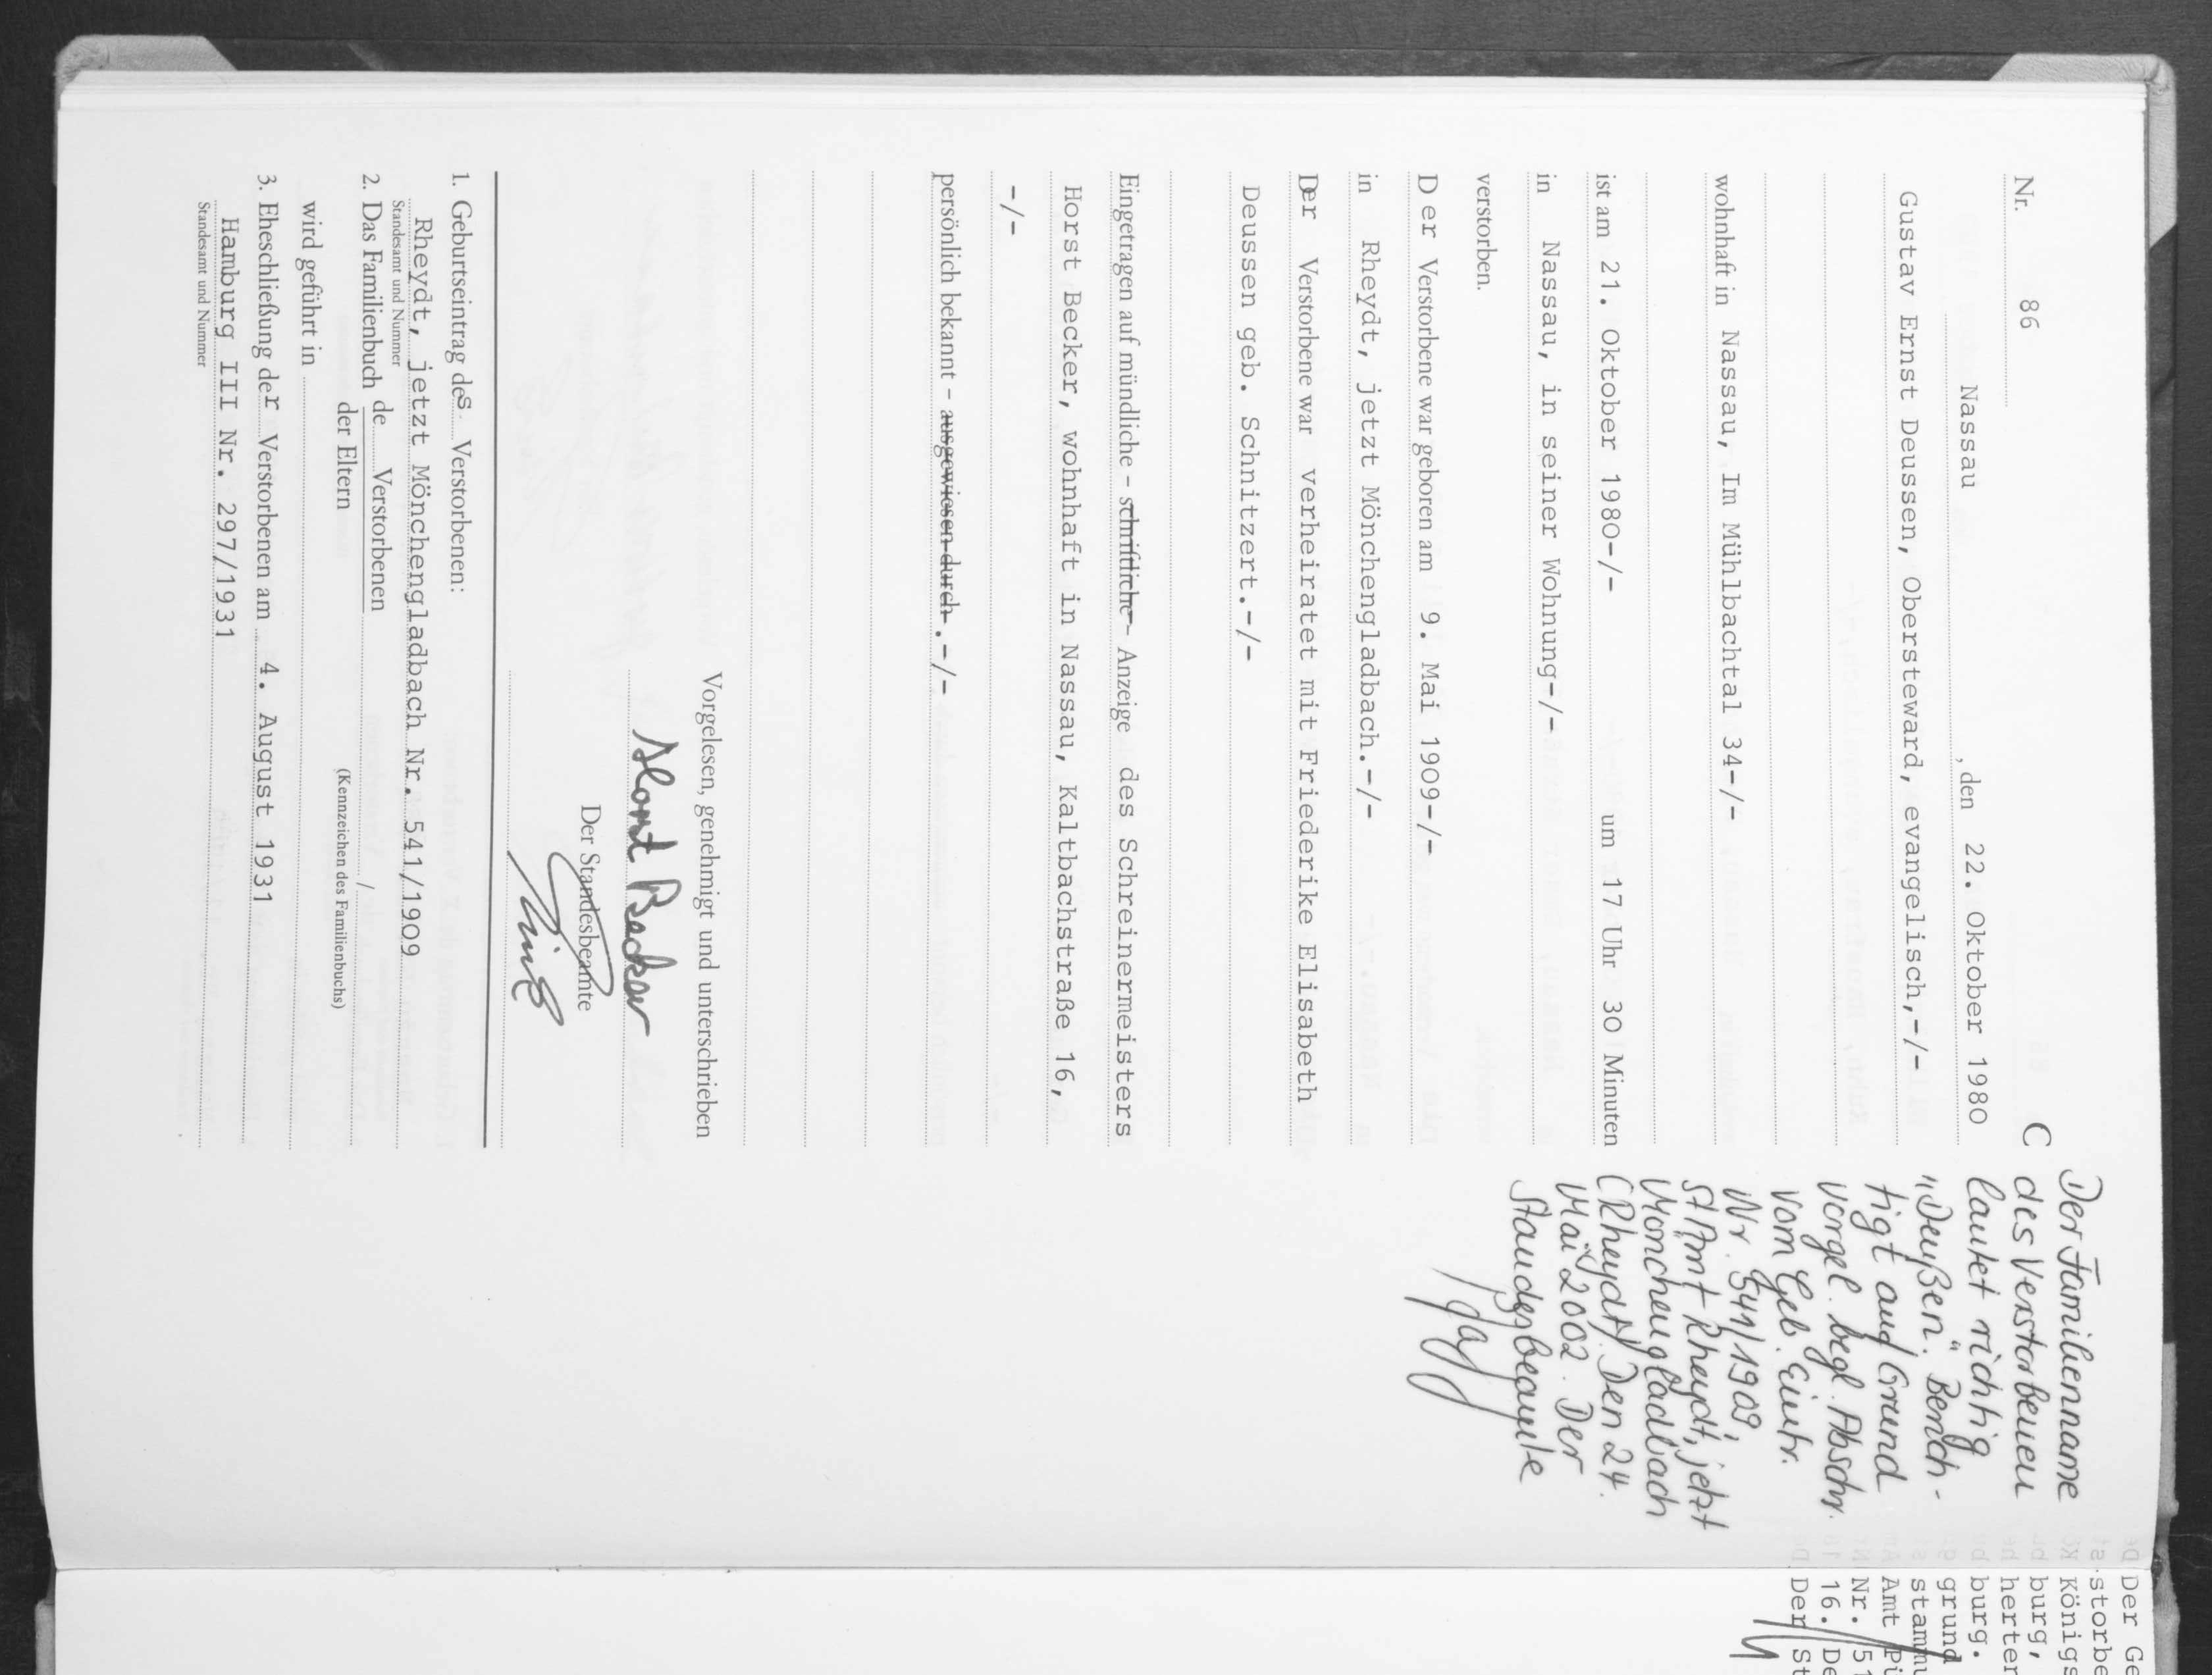 Nr. 86 C
Nassau, den 22. Oktober 1980
Gustav Ernst Deussen, Obersteward, evangelisch,-/-
wohnhaft in Nassau, Im Mühlbachtal 34-/-
ist am 21. Oktober 1980-/- um 17 Uhr 30 Minuten
in Nassau, in seiner Wohnung-/-
verstorben.
Der Verstorbene war geboren am 9. Mai 1909-/-
in Rheydt, jetzt Mönchengladbach.-/-
Der Verstorbene war verheiratet mit Friederike Elisabeth
Deussen geb. Schnitzert.-/-
Eingetragen auf mündliche – schriftliche – Anzeige des Schreinermeisters
Horst Becker, wohnhaft in Nassau, Kaltbachstraße 16,
-/-
persönlich bekannt – ausgewiesen durch .-/-
Vorgelesen, genehmigt und unterschrieben
Horst Becker
Der Standesbeamte
1. Geburtseintrag des Verstorbenen:
Rheydt, jetzt Mönchengladbach Nr. 541/1909
Standesamt und Nummer
2. Das Familienbuch de Verstorbenen /
der Eltern (Kennzeichen des Familienbuchs)
wird geführt in
3. Eheschließung der Verstorbenen am 4. August 1931
Hamburg III Nr. 297/1931
Standesamt und Nummer
Der Familienname
des Verstorbenen
lautet richtig
"Deußen". Berich-
tigt auf Grund
vorgel. begl. Abschr.
vom Geb. Eintr.
Nr. 541/1909,
StAmt Rheydt, jetzt
Mönchengladbach
(Rheydt). Den 24.
Mai 2002. Der
Standesbeamte
Der Ge
storbe
Königs
burg,
herter
burg.
grund
stammu
Amt Pü
Nr. 51
16. De
Der St